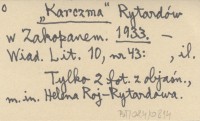 "Karczma" Rytardów
w Zakopanem. 1933. –
Wiad. Lit. 10, nr 43: , il.
Tylko 2 fot. z objaśn.,
m. in. Helena Roj-Rytardowa.